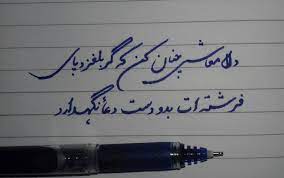 دلا معاش چنان کن که گر بلغزد پای
فرشته ات بدو دست دعا نگهدارد